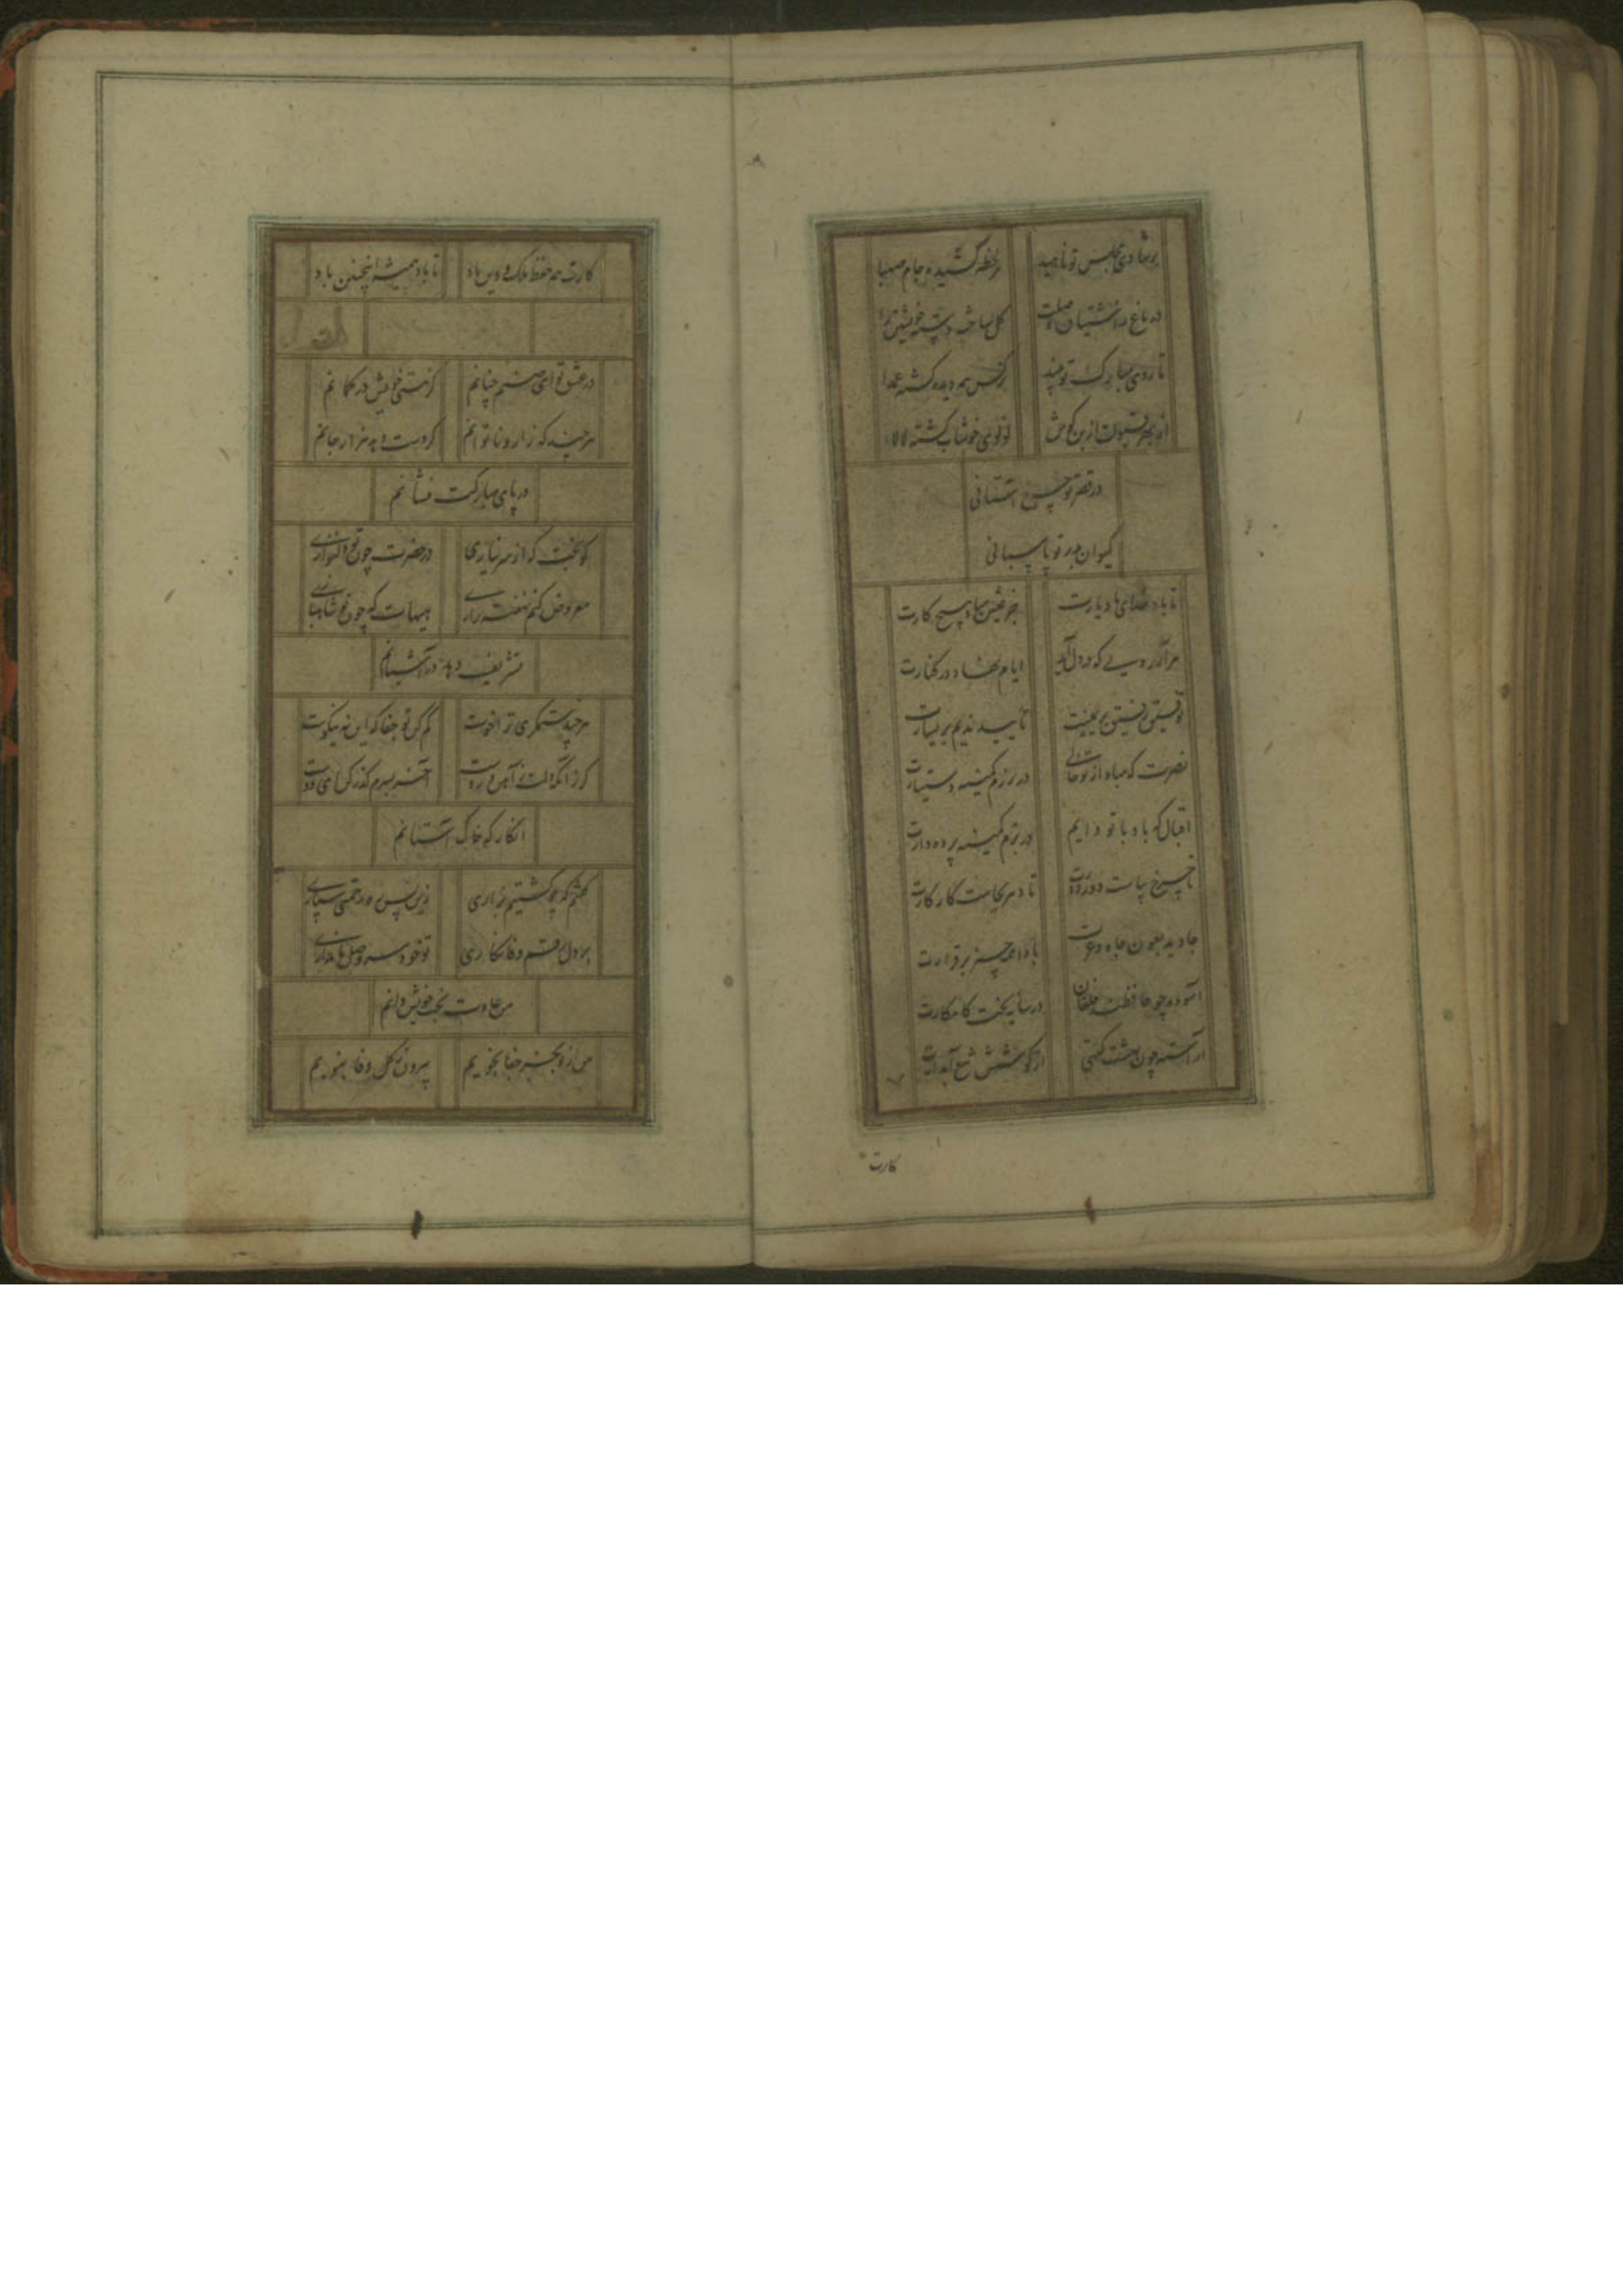 بر شادی مجلس تو ناهید هر لحظه کشیده جام صهبا
در باغ ز اشتیاق وصلت گل ساخته دسته خویشتن را
تا روی مبارک تو بیند نرگس همه دیده گشته عمدا
از بهر قبولت از بن گوش لولوی خوشاب گشته لالا
در قصر تو چرخ آستانی
کیوان بدر تو پاسبانی
تا باد خدای باد یارت جز عیش مباد هیچ کارت
هر آرزویی که در دل آید ایام نهاد در کنارت
توفیق رفیق بر یمینت تایید ندیم بر یسارت
نصرت که مباد از تو خالی در رزم کمینه دستیارت
اقبال که باد با تو دایم در بزم کمینه پرده دارت
تا چرخ بپاست دور دورت تا دهر بجاست کار کارت
جاوید بعون جاه و عزت بادا همه چیز برقرارت
آسوده چو حافظت خلقان در سایه بخت کامکارت
آراسته چون بهشت گیتی از کوشش تیغ آبدارت
کارت
کارت همه حفظ ملک و دین باد تا باد همیشه اینچنین باد
در عشق تو ای صنم چنانم کز هستی خویش در گمانم
هر چند که زار و ناتوانم گر دست دهد هزار جانم
در پای مبارکت فشانم
کو بخت که از سر نیازی در حضرت چون تو دلنوازی
معروض کنم نهفته رازی هیهات که چون تو شاهبازی
تشریف دهد در آشیانم
هر چند ستمگری ترا خوست کم کن تو جفا که این نه نیکوست
گر زانکه دلت نه آهن و روست آخر بسرم گذر کن ای دوست
انگار که خاک آستانم
گفتم که چو کشتیم بزاری زین پس ره مرحمت سپاری
بر دل رقم وفا نگاری تو خود سر وصل ما نداری
من عادت بخت خویش دانم
من از تو بجز جفا نجویم بیرون ز گل وفا نبویم